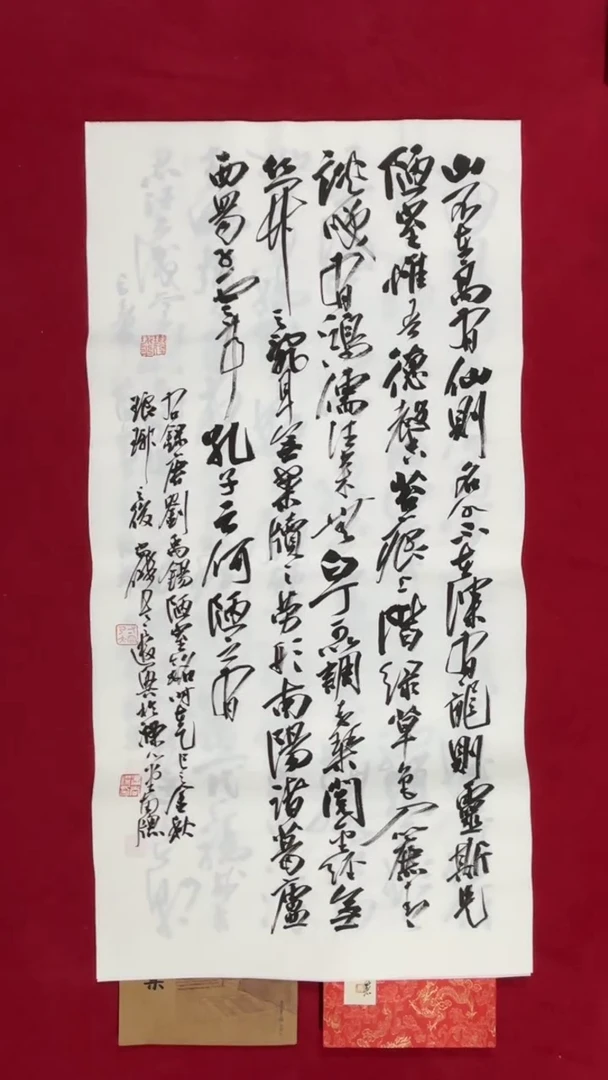 山不在高有仙則名水不在深有龍則靈斯是
陋室惟吾德馨苔痕上階綠草色入簾青
談笑有鴻儒往來無白丁可調素琴閱金經無
絲竹之亂耳無案牘之勞形南陽諸葛廬
西蜀子雲亭孔子云何陋之有
右錄唐劉禹錫陋室銘時在乙巳之金秋
琅琊之後遣興於南牕